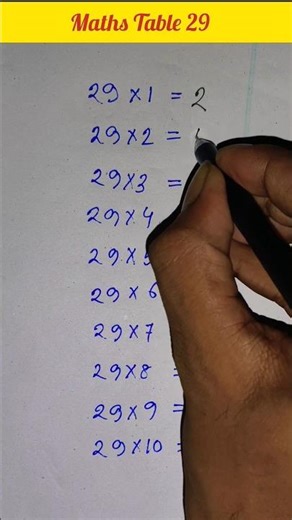 Maths Table 29
29 × 1 = 2
29 × 2 =
29 × 3 =
29 × 4
29 × 5
29 × 6
29 × 7
29 × 8 =
29 × 9 =
29 × 10 =